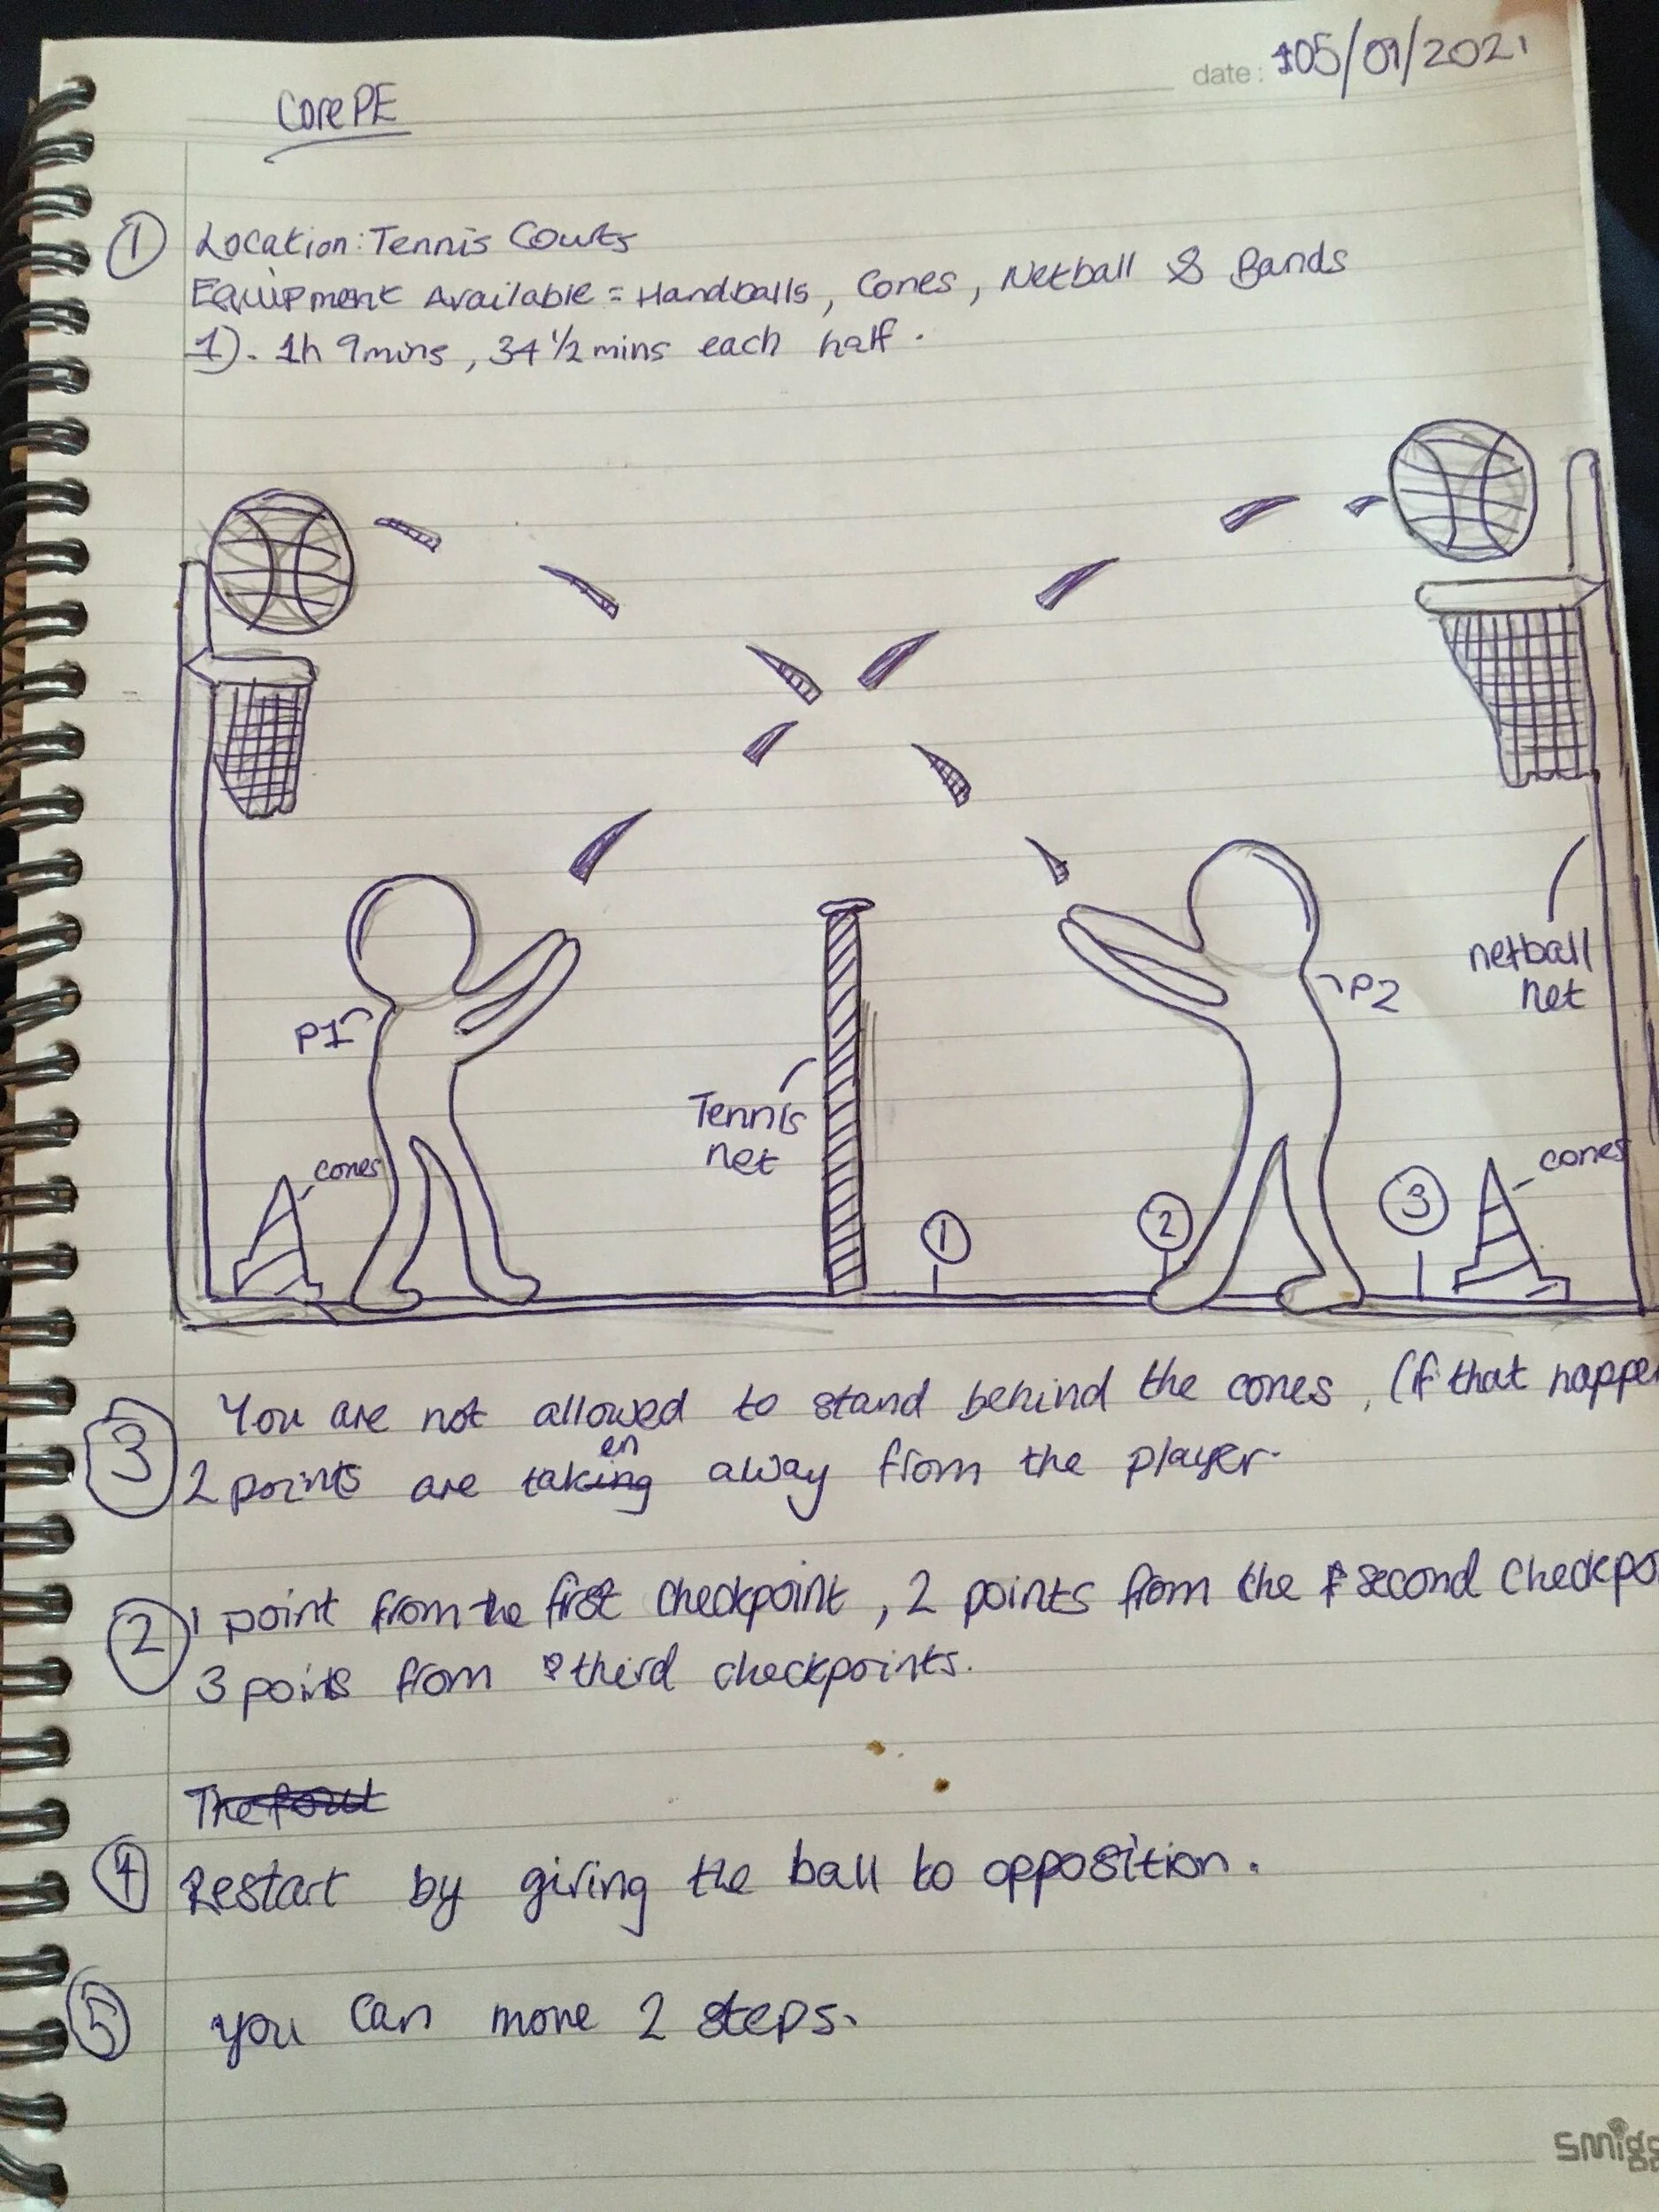 date: 05/01/2021
Core PE
1 Location: Tennis Courts
Equipment Available = Handballs, Cones, Netball & Bands
1). 1h 9mins, 34 1/2 mins each half.
P1
P2
netball
net
Tennis
net
cones
cones
1
2
3
3 You are not allowed to stand behind the cones, (if that happe
en
2 points are taking away from the player.
2 1 point from the first checkpoint, 2 points from the second checkpo
3 points from third checkpoints.
4 Restart by giving the ball to opposition.
5 you can move 2 steps.
smigg